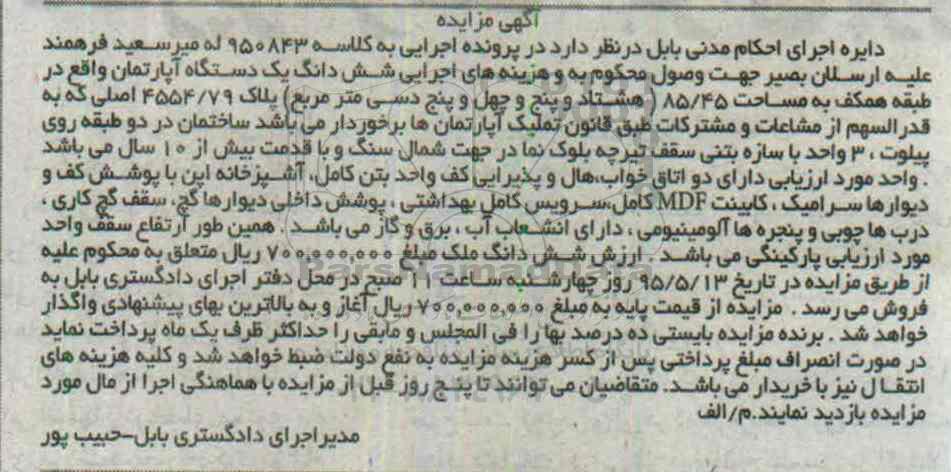 آگهی مزایده
دایره اجرای احکام مدنی بابل درنظر دارد در پرونده اجرایی به کلاسه ۹۵۰۸۴۳ له میرسعید فرهمند
علیه ارسلان بصیر جهت وصول محکوم به و هزینه های اجرایی شش دانگ یک دستگاه آپارتمان واقع در
طبقه همکف به مساحت ۸۵/۴۵ (هشتاد و پنج و چهل و پنج دسی متر مربع) پلاک ۴۵۵۴/۷۹ اصلی که به
قدرالسهم از مشاعات و مشترکات طبق قانون تملیک آپارتمان ها برخوردار می باشد ساختمان در دو طبقه روی
پیلوت ، ۳ واحد با سازه بتنی سقف تیرچه بلوک نما در جهت شمال سنگ و با قدمت بیش از ۱۰ سال می باشد
. واحد مورد ارزیابی دارای دو اتاق خواب،هال و پذیرایی کف واحد بتن کامل، آشپزخانه اپن با پوشش کف و
دیوارها سرامیک ، کابینت MDF کامل،سرویس کامل بهداشتی ، پوشش داخلی دیوارها گچ، سقف گچ کاری ،
درب ها چوبی و پنجره ها آلومینیومی ، دارای انشعاب آب ، برق و گاز می باشد . همین طور ارتفاع سقف واحد
مورد ارزیابی پارکینگی می باشد . ارزش شش دانگ ملک مبلغ ۷۰۰,۰۰۰,۰۰۰ ریال متعلق به محکوم علیه
از طریق مزایده در تاریخ ۹۵/۵/۱۳ روز چهارشنبه ساعت ۱۱ صبح در محل دفتر اجرای دادگستری بابل به
فروش می رسد . مزایده از قیمت پایه به مبلغ ۷۰۰,۰۰۰,۰۰۰ ریال آغاز و به بالاترین بهای پیشنهادی واگذار
خواهد شد . برنده مزایده بایستی ده درصد بها را فی المجلس و مابقی را حداکثر ظرف یک ماه پرداخت نماید
در صورت انصراف مبلغ پرداختی پس از کسر هزینه مزایده به نفع دولت ضبط خواهد شد و کلیه هزینه های
انتقال نیز با خریدار می باشد. متقاضیان می توانند تا پنج روز قبل از مزایده با هماهنگی اجرا از مال مورد
مزایده بازدید نمایند.م/الف
مدیراجرای دادگستری بابل-حبیب پور
ParsNamadData